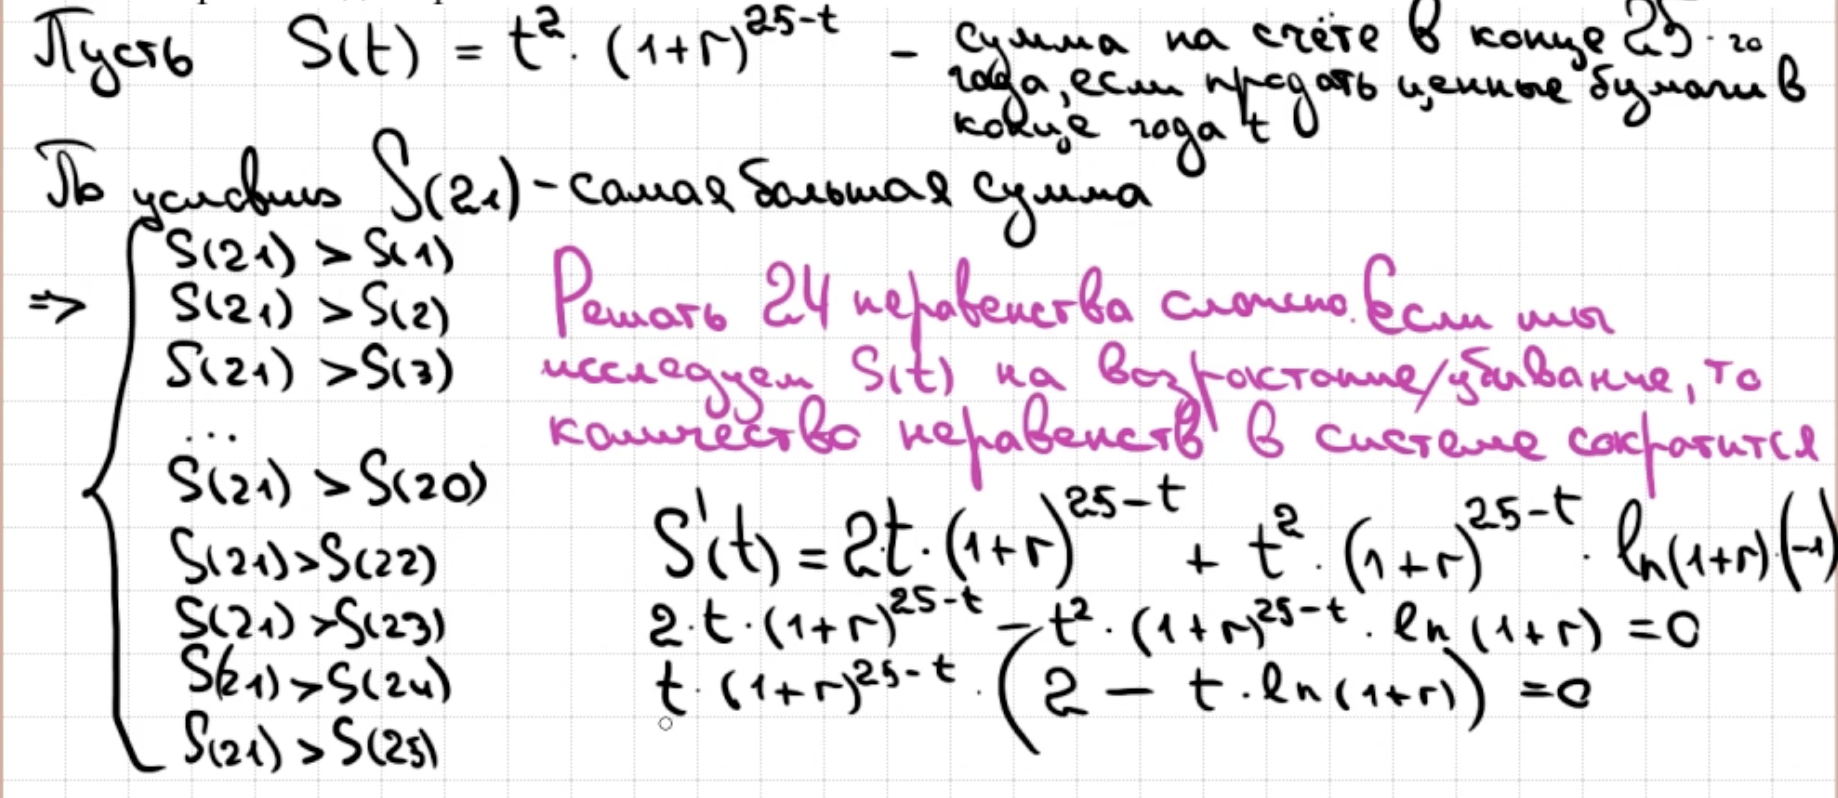 Пусть S(t) = t² · (1+r)^(25-t) - сумма на счёте в конце 25-го
года, если продать ценные бумаги в
конце года t
По условию S(21) - самая большая сумма
=> S(21) > S(1)
S(21) > S(2)
S(21) > S(3)
...
S(21) > S(20)
S(21) > S(22)
S(21) > S(23)
S(21) > S(24)
S(21) > S(25)
Решать 24 неравенства сложно. Если мы
исследуем S(t) на возрастание/убывание, то
количество неравенств в системе сократится
S'(t) = 2t · (1+r)^(25-t) + t² · (1+r)^(25-t) · ln(1+r)·(-1)
2·t·(1+r)^(25-t) - t² · (1+r)^(25-t) · ln(1+r) = 0
t · (1+r)^(25-t) · (2 - t · ln(1+r)) = 0